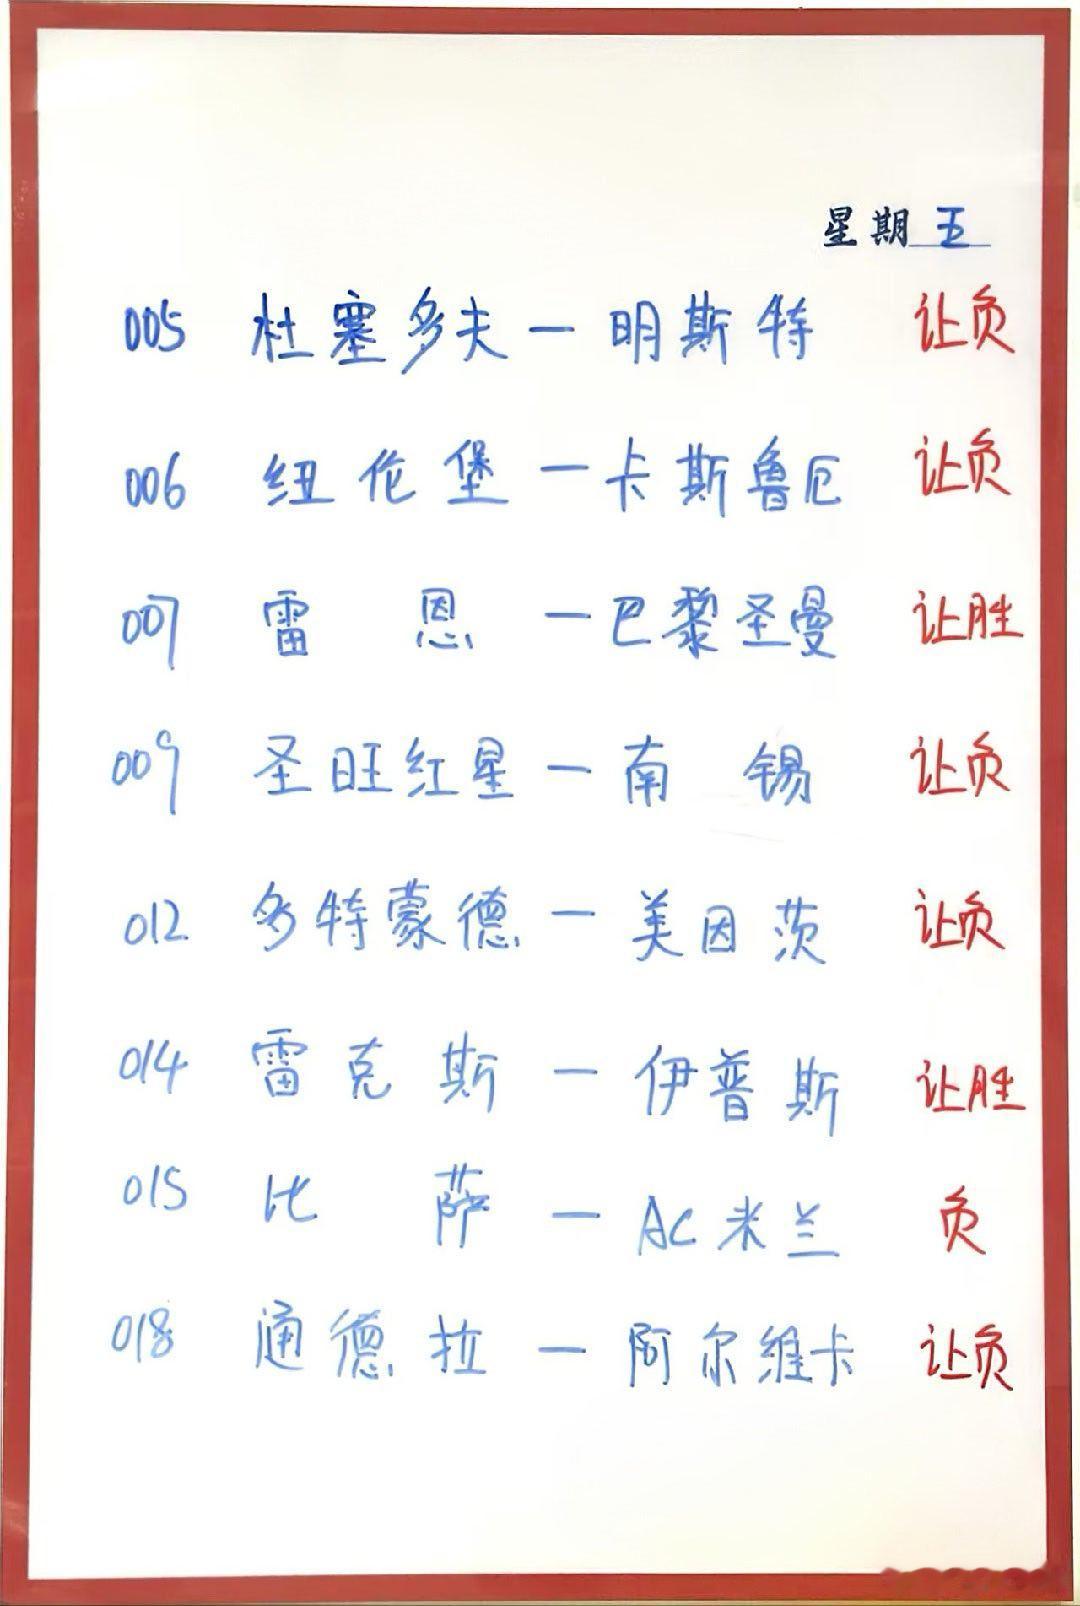 星期五
005 杜塞多夫一明斯特 让负
006 纽伦堡一卡斯鲁厄 让负
007 雷恩一巴黎圣曼 让胜
009 圣旺红星一南锡 让负
012 多特蒙德一美因茨 让负
014 雷克斯一伊普斯 让胜
015 比萨一AC米兰 负
018 通德拉一阿尔维卡 让负